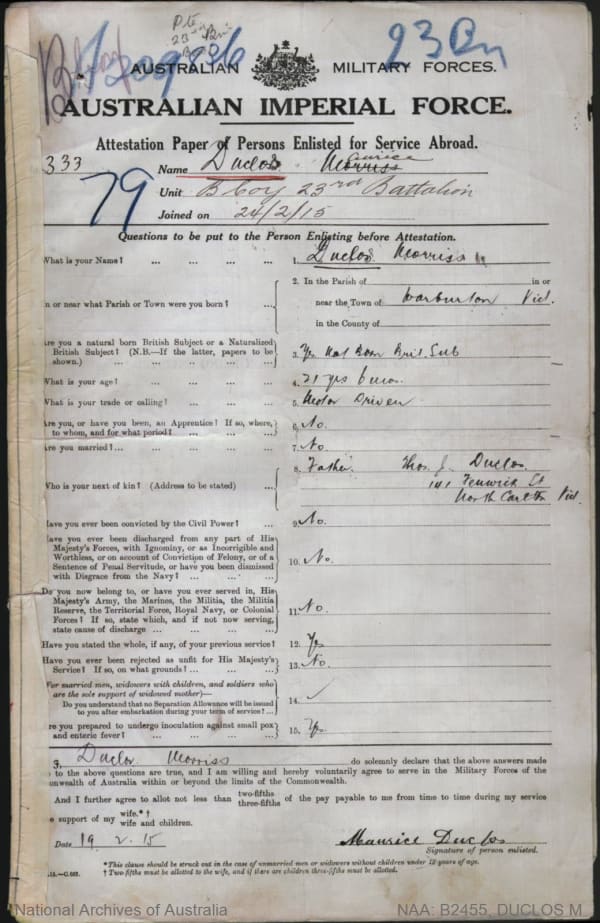 Pte
23rd Bn
23 Bn
AUSTRALIAN MILITARY FORCES.
AUSTRALIAN IMPERIAL FORCE.
Attestation Paper of Persons Enlisted for Service Abroad.
333 Name Duclos Morriss Maurice
79 Unit B Coy 23rd Battalion
Joined on 24/2/15
Questions to be put to the Person Enlisting before Attestation.
What is your Name? ... ... ... ... 1. Duclos Morriss
In or near what Parish or Town were you born? ... 2. In the Parish of in or
near the Town of Warburton Vict.
in the County of
Are you a natural born British Subject or a Naturalized
British Subject? (N.B.—If the latter, papers to be
shown.) ... ... ... ... 3. Yes Nat Born Brit. Sub
What is your age? ... ... ... ... 4. 21 yrs 6 mos.
What is your trade or calling? ... ... ... 5. Motor Driver
Are you, or have you been, an Apprentice? If so, where,
to whom, and for what period? ... ... ... 6. No.
Are you married? ... ... ... ... 7. No.
Who is your next of kin? (Address to be stated) ... 8. Father. Thos. J. Duclos
141 Fenwick St
North Carlton Vict.
Have you ever been convicted by the Civil Power? ... 9. No.
Have you ever been discharged from any part of His
Majesty's Forces, with Ignominy, or as Incorrigible and
Worthless, or on account of Conviction of Felony, or of a
Sentence of Penal Servitude, or have you been dismissed
with Disgrace from the Navy? ... ... ... 10. No.
Do you now belong to, or have you ever served in, His
Majesty's Army, the Marines, the Militia, the Militia
Reserve, the Territorial Force, Royal Navy, or Colonial
Forces? If so, state which, and if not now serving,
state cause of discharge ... ... ... ... 11. No.
Have you stated the whole, if any, of your previous service? 12. Yes
Have you ever been rejected as unfit for His Majesty's
Service? If so, on what grounds? ... ... 13. No.
(For married men, widowers with children, and soldiers who
are the sole support of widowed mother)—
Do you understand that no Separation Allowance will be issued
to you after embarkation during your term of service? ... 14. ✓
Are you prepared to undergo inoculation against small pox
and enteric fever? ... ... ... ... 15. Yes.
I, Duclos Morriss do solemnly declare that the above answers made
to the above questions are true, and I am willing and hereby voluntarily agree to serve in the Military Forces of the
nwealth of Australia within or beyond the limits of the Commonwealth.
And I further agree to allot not less than two-fifths three-fifths of the pay payable to me from time to time during my service
support of my wife.*† wife and children.
Date 19 2. 15 Maurice Duclos
Signature of person enlisted.
*This clause should be struck out in the case of unmarried men or widowers without children under 18 years of age.
† Two-fifths must be allotted to the wife, and if there are children three-fifths must be allotted.
National Archives of Australia NAA: B2455, DUCLOS M